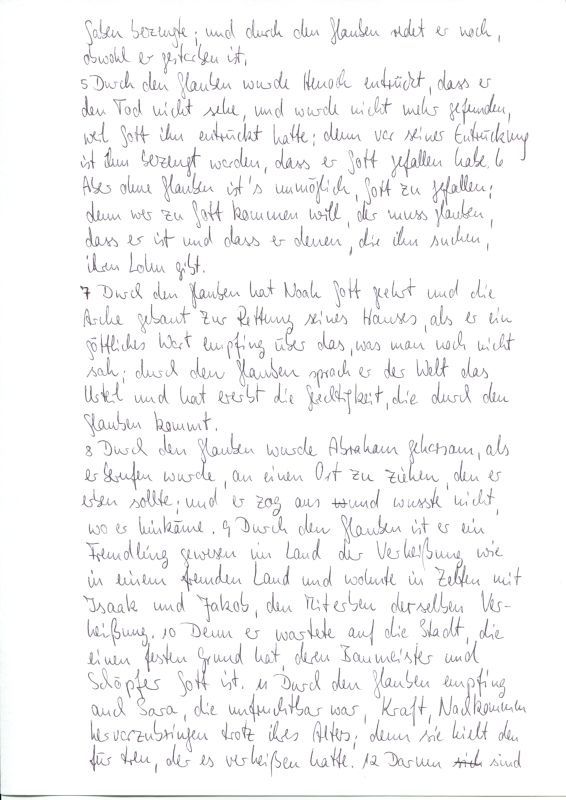 Gaben bezeugte; und durch den Glauben redet er noch,
obwohl er gestorben ist.
5 Durch den Glauben wurde Henoch entrückt, dass er
den Tod nicht sehe, und wurde nicht mehr gefunden,
weil Gott ihn entrückt hatte; denn vor seiner Entrückung
ist ihm bezeugt worden, dass er Gott gefallen habe. 6
Aber ohne Glauben ist's unmöglich, Gott zu gefallen;
denn wer zu Gott kommen will, der muss glauben,
dass er ist und dass er denen, die ihn suchen,
ihren Lohn gibt.
7 Durch den Glauben hat Noah Gott geehrt und die
Arche gebaut zur Rettung seines Hauses, als er ein
göttliches Wort empfing über das, was man noch nicht
sah; durch den Glauben sprach er der Welt das
Urteil und hat ererbt die Gerechtigkeit, die durch den
Glauben kommt.
8 Durch den Glauben wurde Abraham gehorsam, als
er berufen wurde, an einen Ort zu ziehen, den er
erben sollte; und er zog aus und wusste nicht,
wo er hinkäme. 9 Durch den Glauben ist er ein
Fremdling gewesen im Land der Verheißung wie
in einem fremden Land und wohnte in Zelten mit
Isaak und Jakob, den Miterben derselben Ver-
heißung. 10 Denn er wartete auf die Stadt, die
einen festen Grund hat, deren Baumeister und
Schöpfer Gott ist. 11 Durch den Glauben empfing
auch Sara, die unfruchtbar war, Kraft, Nachkommen
hervorzubringen trotz ihres Alters; denn sie hielt den
für treu, der es verheißen hatte. 12 Darum sind